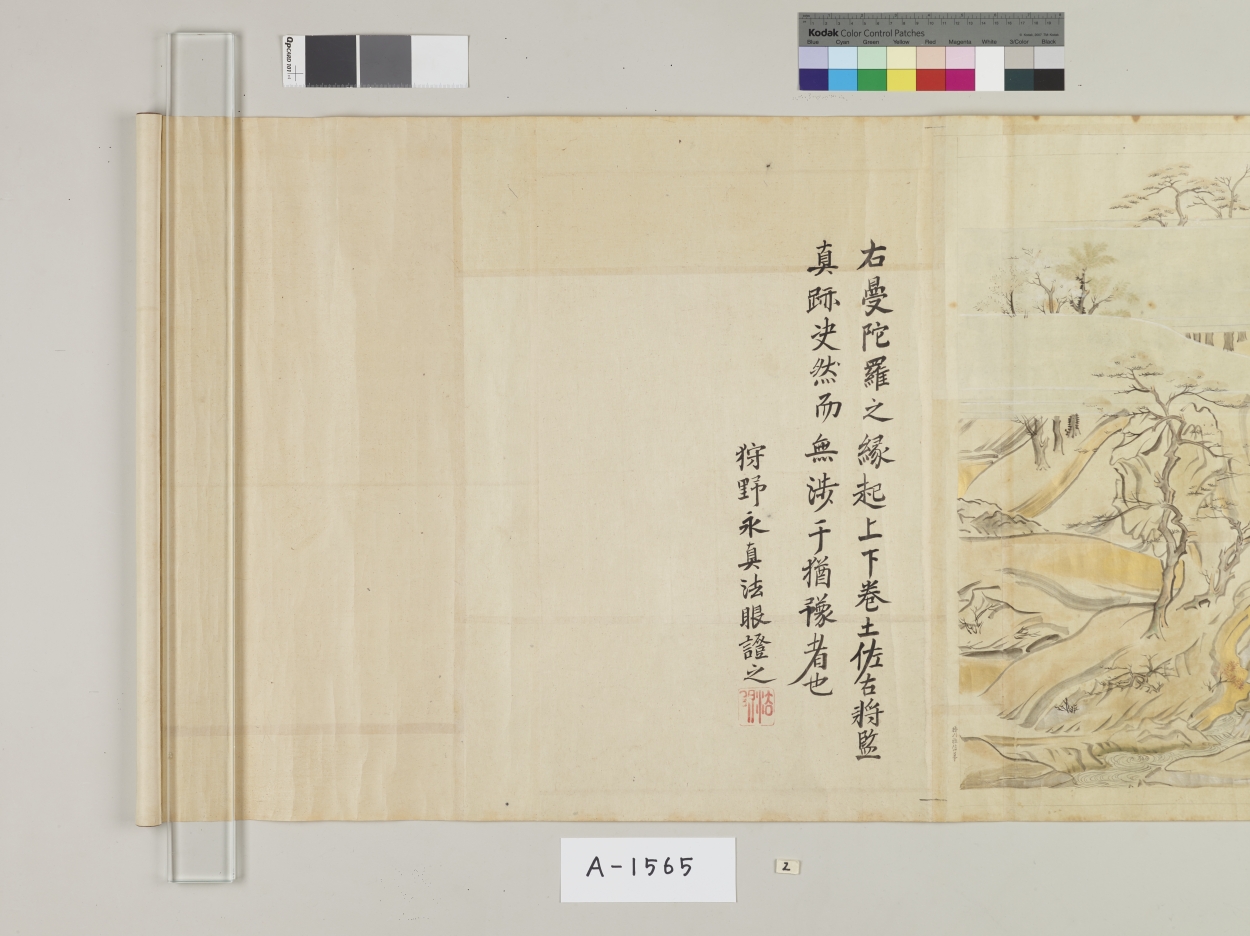 右曼陀羅之縁起上下巻土佐右将監
真跡决然而無渉于猶豫者也
狩野永真法眼證之
Kodak Color Control Patches
Blue Cyan Green Yellow Red Magenta White 3/Color Black
QPcard 101
A-1565
2